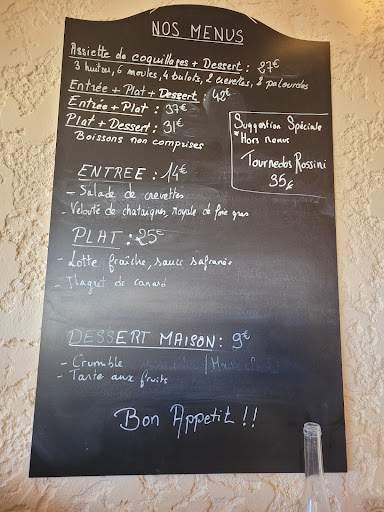 NOS MENUS
Assiette de coquillages + Dessert : 27€
3 huitres, 6 moules, 4 bulots, 2 crevettes, 2 palourdes
Entrée + Plat + Dessert 42€
Entrée + Plat : 37€
Plat + Dessert : 31€
Boissons non comprises
Suggestion Spéciale
*Hors menus
Tournedos Rossini
35€
ENTREE : 14€
- Salade de crevettes
- Velouté de chataignes, royale de foie gras
PLAT : 25€
- Lotte fraîche, sauce safranée
- Magret de canard
DESSERT MAISON : 9€
- Crumble
- Tarte aux fruits
Bon Appetit !!